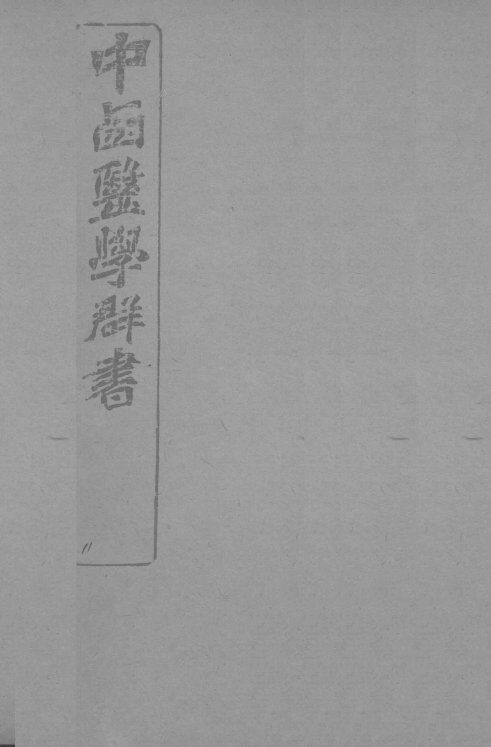 中西醫學群書
11